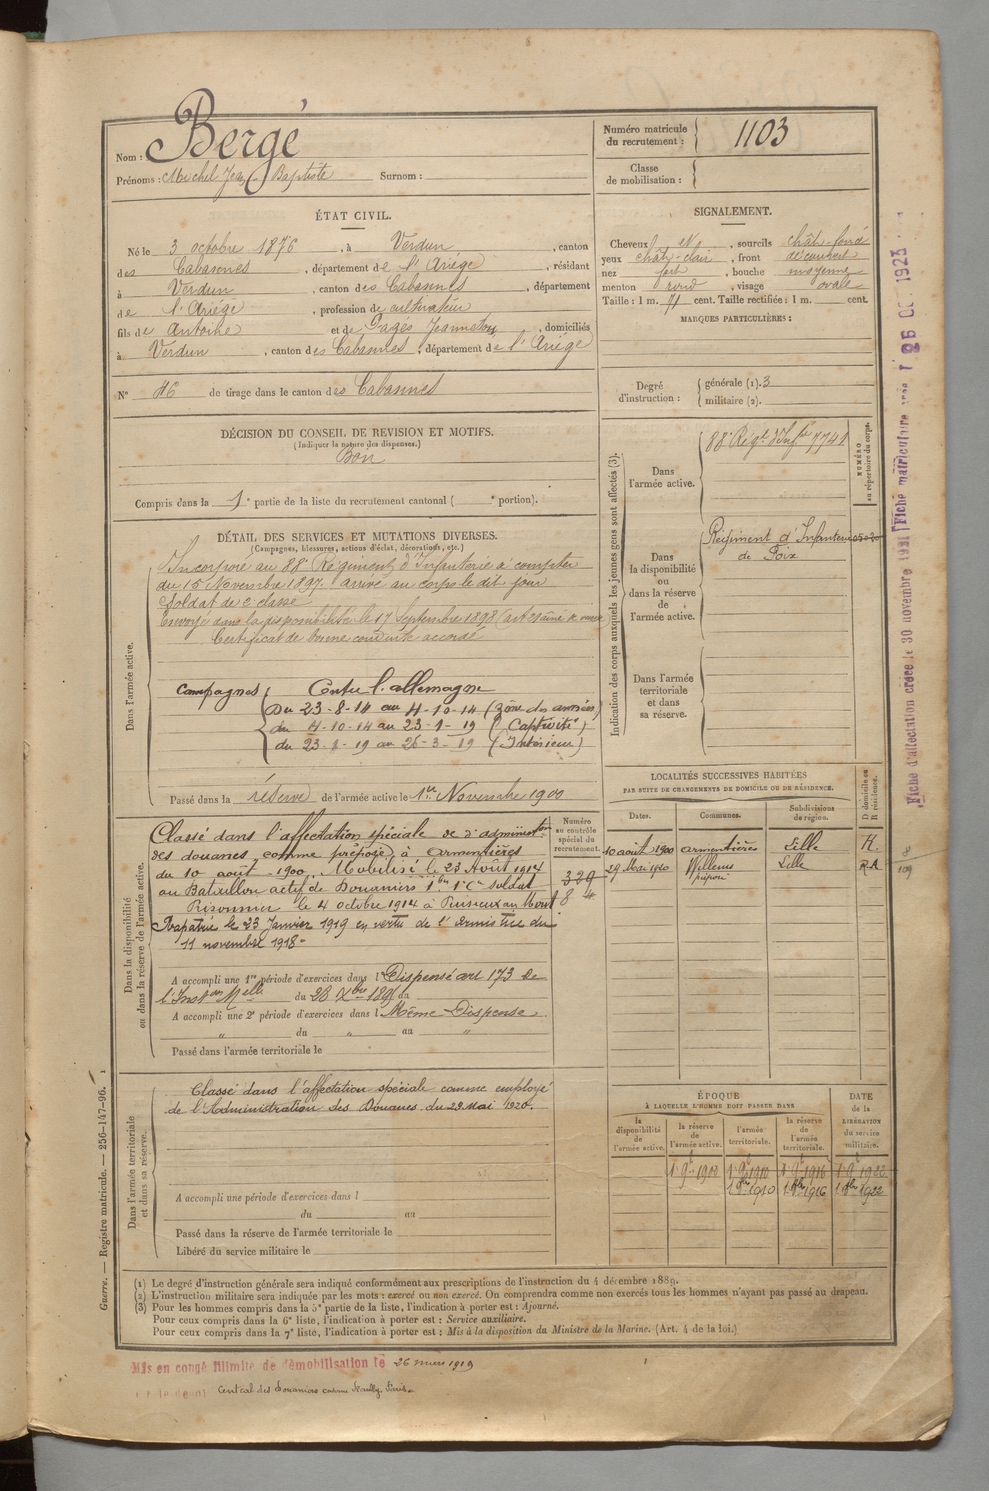 Nom : Bergé
Prénoms : Michel Jean Baptiste Surnom :
Numéro matricule du recrutement : 1103
Classe de mobilisation :
ÉTAT CIVIL.
Né le 3 octobre 1876, à Verdun, canton
des Cabannes, département de l'Ariège, résidant
à Verdun, canton des Cabannes, département
de l'Ariège, profession de cultivateur
fils de Antoine et de Gagés Jeanneton, domiciliés
à Verdun, canton des Cabannes, département de l'Ariège
N° 46 de tirage dans le canton des Cabannes
SIGNALEMENT.
Cheveux et, sourcils chât-foncé
yeux chât-clair, front découvert
nez fort, bouche moyenne
menton rond, visage ovale
Taille : 1 m. 71 cent. Taille rectifiée : 1 m. cent.
MARQUES PARTICULIÈRES :
Degré d'instruction : générale (1). 3
militaire (2).
DÉCISION DU CONSEIL DE REVISION ET MOTIFS.
(Indiquer la nature des dispenses.)
Bon
Compris dans la 1e partie de la liste du recrutement cantonal ( e portion).
DÉTAIL DES SERVICES ET MUTATIONS DIVERSES.
(Campagnes, blessures, actions d'éclat, décorations, etc.)
Dans l'armée active.
Incorporé au 88e Régiment d'Infanterie à compter
du 15 Novembre 1897. arrivé au corps le dit jour
Soldat de 2e classe
Envoyé dans la disponibilité le 17 Septembre 1898
Certificat de bonne conduite accordé
Campagnes Contre l'allemagne
Du 23-8-14 au 4-10-14 (Zône des armées)
du 4-10-14 au 23-1-19 (Captivité)
du 23-1-19 au 26-3-19 (Intérieur)
Passé dans la réserve de l'armée active le 1er Novembre 1900
Indication des corps auxquels les jeunes gens sont affectés (3).
NUMÉRO au répertoire du corps.
Dans l'armée active.
88e Régt d'Infie 7741
Dans la disponibilité ou dans la réserve de l'armée active.
Régiment d'Infanterie
de Foix
Dans l'armée territoriale et dans sa réserve.
Dans la disponibilité ou dans la réserve de l'armée active.
Classé dans l'affectation spéciale de d'administon
des douanes comme préposé à Armentières
du 10 août 1900. Mobilisé le 23 Août 1914
au Bataillon actif de Douaniers 1er 1e Cie soldat
Prisonnier le 4 octobre 1914 à
Rapatrié le 23 Janvier 1919 en vertu de l'armistice du
11 novembre 1918.
Numéro au contrôle spécial du recrutement.
329
84
A accompli une 1re période d'exercices dans l Dispensé art 173 de
l'Inston Melle du 28 Xbre 1895 au
A accompli une 2e période d'exercices dans l Même Dispense
" du " au "
Passé dans l'armée territoriale le
LOCALITÉS SUCCESSIVES HABITÉES
PAR SUITE DE CHANGEMENTS DE DOMICILE OU DE RÉSIDENCE.
Dates. Communes. Subdivisions de région. D domicile ou R résidence.
10 août 1900 Armentières Lille R.
29 Mai 1920 Willems Lille R.A
préposé
8
109
Dans l'armée territoriale et dans sa réserve.
Classé dans l'affectation spéciale comme employé
de l'Administration des Douanes du 29 Mai 1920.
A accompli une période d'exercices dans l
du au
Passé dans la réserve de l'armée territoriale le
Libéré du service militaire le
ÉPOQUE
À LAQUELLE L'HOMME DOIT PASSER DANS
DATE de la LIBÉRATION du service militaire.
la disponibilité de l'armée active. la réserve de l'armée active. l'armée territoriale. la réserve de l'armée territoriale.
1 9e 1900 1 9e 1910 1 9e 1916 1 9e 1922
1 9bre 1910 1 9bre 1916 1 9bre 1922
(1) Le degré d'instruction générale sera indiqué conformément aux prescriptions de l'instruction du 4 décembre 1889.
(2) L'instruction militaire sera indiquée par les mots : exercé ou non exercé. On comprendra comme non exercés tous les hommes n'ayant pas passé au drapeau.
(3) Pour les hommes compris dans la 5e partie de la liste, l'indication à porter est : Ajourné.
Pour ceux compris dans la 6e liste, l'indication à porter est : Service auxiliaire.
Pour ceux compris dans la 7e liste, l'indication à porter est : Mis à la disposition du Ministre de la Marine. (Art. 4 de la loi.)
Guerre. — Registre matricule. — 256-147-96.
Mis en congé illimité de démobilisation le 26 mars 1919
le dépôt Central des Douaniers caserne Reuilly Paris.
Fiche d'affectation créée le 30 novembre 1921
Fiche matriculaire créée le 26 OCT 1923